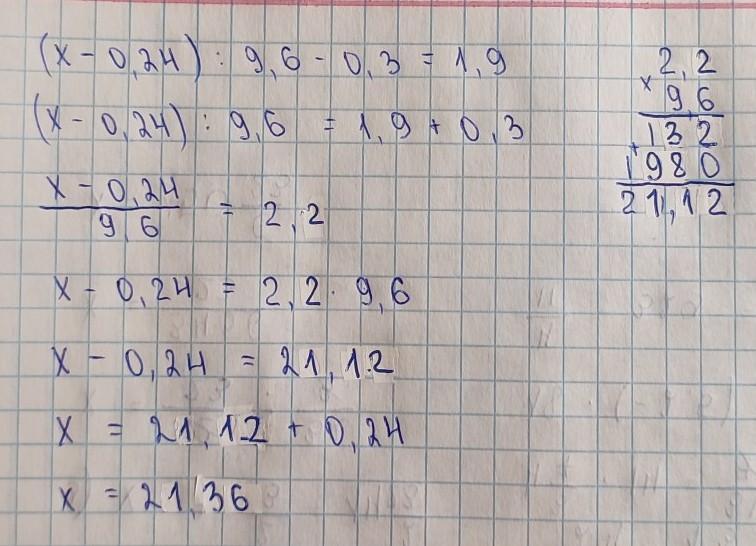 (x - 0,24) : 9,6 - 0,3 = 1,9
(x - 0,24) : 9,6 = 1,9 + 0,3
x - 0,24
9,6
= 2,2
x - 0,24 = 2,2 · 9,6
x - 0,24 = 21,12
x = 21,12 + 0,24
x = 21,36
2,2
× 9,6
132
+ 1980
21,12